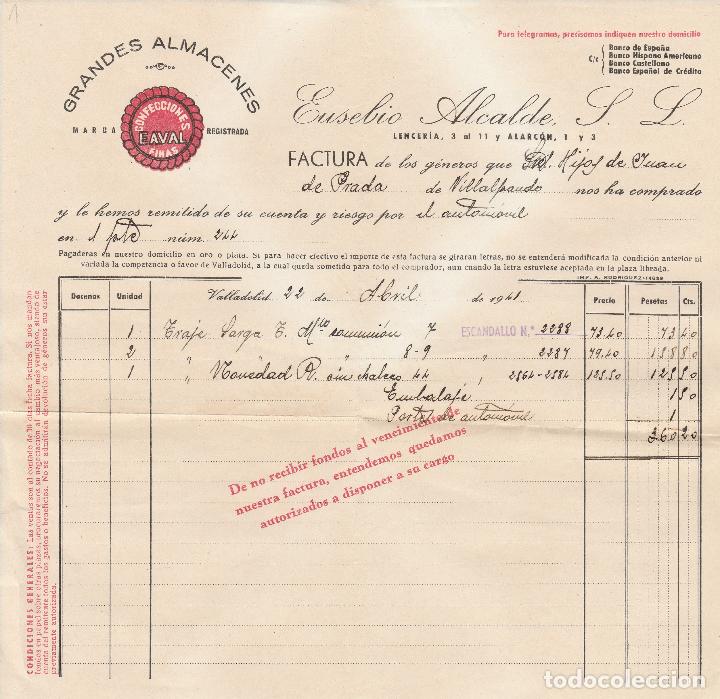 1
Para telegramas, precisamos indiquen nuestro domicilio
GRANDES ALMACENES
MARCA REGISTRADA
CONFECCIONES
EAVAL
FINAS
C/c
Banco de España
Banco Hispano Americano
Banco Castellano
Banco Español de Crédito
Eusebio Alcalde, S. L.
LENCERÍA, 3 al 11 y ALARCÓN, 1 y 3
FACTURA de los géneros que Hijos de Juan
de Prada de Villalpando nos ha comprado
y le hemos remitido de su cuenta y riesgo por el automóvil
en 1 pte núm. 244
Pagaderas en nuestro domicilio en oro o plata. Si para hacer efectivo el importe de esta factura se giraran letras, no se entenderá modificada la condición anterior ni
variada la competencia a favor de Valladolid, a la cual queda sometido para todo el comprador, aun cuando la letra estuviese aceptada en la plaza librada.
IMP. A. RODRIGUEZ
Docenas Unidad Valladolid 22 de Abril de 1941 Precio Pesetas Cts.
1 Traje Sarga T. Mto comunión 7 ESCANDALLO N.º 2288 73,40 73 40
2 " " 8-9 " 2287 79,40 158 80
1 " Novedad R. sin chaleco 44 " 2564-2584 125,50 125 50
Embalaje 1 50
Portes de automóvil 1
360 20
De no recibir fondos al vencimiento de
nuestra factura, entendemos quedamos
autorizados a disponer a su cargo
CONDICIONES GENERALES: Las ventas son al contado de 30 días fecha factura. Si nos mandan
fondos en papel sobre otras plazas, procuraremos su negociación al cambio más ventajoso, siendo de
cuenta del remitente todos los gastos o beneficios. No se admitirán devolución de géneros sin estar
previamente autorizada.
todocoleccion.net